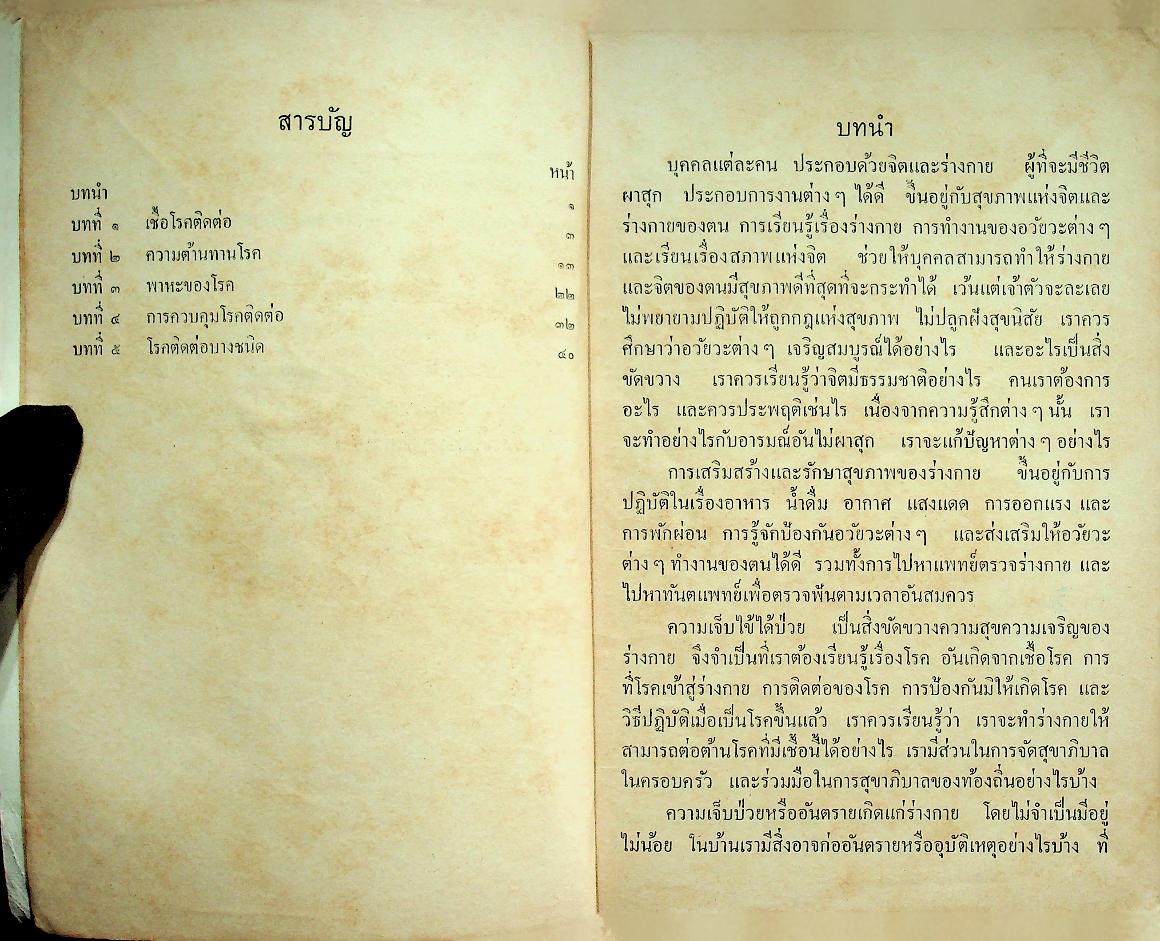 สารบัญ
หน้า
บทนำ ๑
บทที่ ๑ เชื้อโรคติดต่อ ๓
บทที่ ๒ ความต้านทานโรค ๑๓
บทที่ ๓ พาหะของโรค ๒๒
บทที่ ๔ การควบคุมโรคติดต่อ ๓๒
บทที่ ๕ โรคติดต่อบางชนิด ๔๐
บทนำ
บุคคลแต่ละคน ประกอบด้วยจิตและร่างกาย ผู้ที่จะมีชีวิต
ผาสุก ประกอบการงานต่าง ๆ ได้ดี ขึ้นอยู่กับสุขภาพแห่งจิตและ
ร่างกายของตน การเรียนรู้เรื่องร่างกาย การทำงานของอวัยวะต่าง ๆ
และเรียนเรื่องสภาพแห่งจิต ช่วยให้บุคคลสามารถทำให้ร่างกาย
และจิตของตนมีสุขภาพดีที่สุดที่จะกระทำได้ เว้นแต่เจ้าตัวจะละเลย
ไม่พยายามปฏิบัติให้ถูกกฎแห่งสุขภาพ ไม่ปลูกฝังสุขนิสัย เราควร
ศึกษาว่าอวัยวะต่าง ๆ เจริญสมบูรณ์ได้อย่างไร และอะไรเป็นสิ่ง
ขัดขวาง เราควรเรียนรู้ว่าจิตมีธรรมชาติอย่างไร คนเราต้องการ
อะไร และควรประพฤติเช่นไร เนื่องจากความรู้สึกต่าง ๆ นั้น เรา
จะทำอย่างไรกับอารมณ์อันไม่ผาสุก เราจะแก้ปัญหาต่าง ๆ อย่างไร
การเสริมสร้างและรักษาสุขภาพของร่างกาย ขึ้นอยู่กับการ
ปฏิบัติในเรื่องอาหาร น้ำดื่ม อากาศ แสงแดด การออกแรง และ
การพักผ่อน การรู้จักป้องกันอวัยวะต่าง ๆ และส่งเสริมให้อวัยวะ
ต่าง ๆ ทำงานของตนได้ดี รวมทั้งการไปหาแพทย์ตรวจร่างกาย และ
ไปหาทันตแพทย์เพื่อตรวจฟันตามเวลาอันสมควร
ความเจ็บไข้ได้ป่วย เป็นสิ่งขัดขวางความสุขความเจริญของ
ร่างกาย จึงจำเป็นที่เราต้องเรียนรู้เรื่องโรค อันเกิดจากเชื้อโรค การ
ที่โรคเข้าสู่ร่างกาย การติดต่อของโรค การป้องกันมิให้เกิดโรค และ
วิธีปฏิบัติเมื่อเป็นโรคขึ้นแล้ว เราควรเรียนรู้ว่า เราจะทำร่างกายให้
สามารถต่อต้านโรคที่มีเชื้อนี้ได้อย่างไร เรามีส่วนในการจัดสุขาภิบาล
ในครอบครัว และร่วมมือในการสุขาภิบาลของท้องถิ่นอย่างไรบ้าง
ความเจ็บป่วยหรืออันตรายเกิดแก่ร่างกาย โดยไม่จำเป็นมีอยู่
ไม่น้อย ในบ้านเรามีสิ่งอาจก่ออันตรายหรืออุบัติเหตุอย่างไรบ้าง ที่